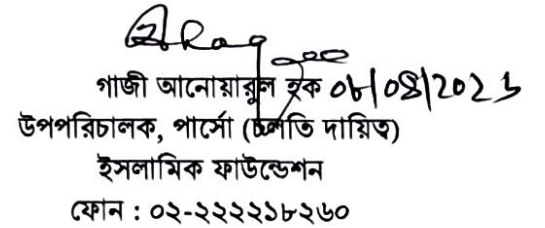 গাজী আনোয়ারুল হক
উপপরিচালক, পার্সো (চলতি দায়িত্ব)
ইসলামিক ফাউন্ডেশন
ফোন : ০২-২২২২১৮২৬০